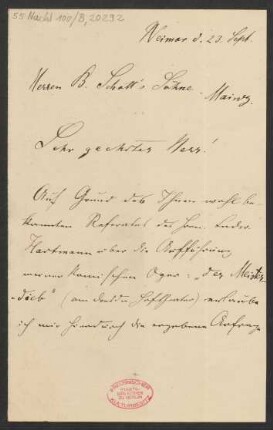 55 Nachl 100/B, 20292
Weimar d. 23. Sept.
Herren B. Schott's Söhne
Mainz
Sehr geehrter Herr!
Auf Grund des Ihnen wohl be-
kannten Referates des Herrn Ludw.
Hartmann über die Aufführung
meiner komischen Oper: „der Meister-
dieb" (am Hoftheater) erlaube
ich mir hierdurch die ergebene Anfrage